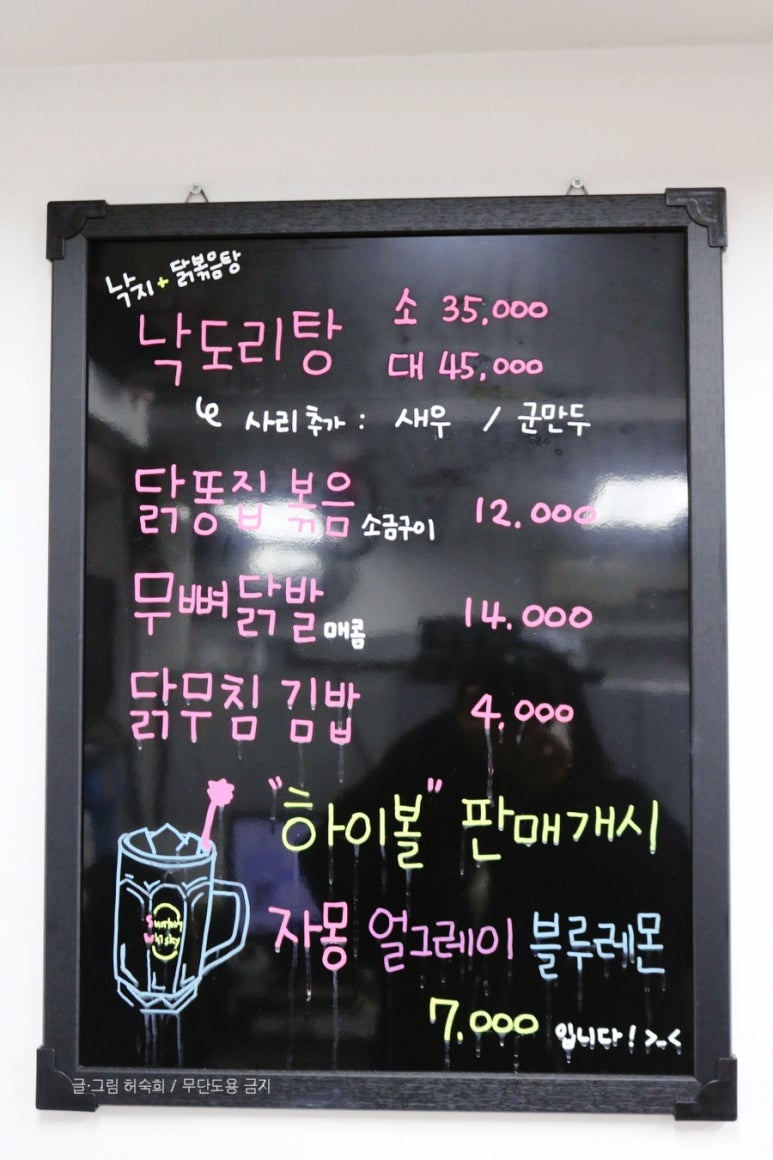 낙지+닭볶음탕
낙도리탕 소 35,000
대 45,000
사리추가 : 새우 / 군만두
닭똥집 볶음 소금구이 12.000
무뼈닭발 매콤 14.000
닭무침 김밥 4.000
"하이볼" 판매개시
Suntory
Whisky
자몽 얼그레이 블루레몬
7.000 입니다! >_<
글·그림 허숙희 / 무단도용 금지